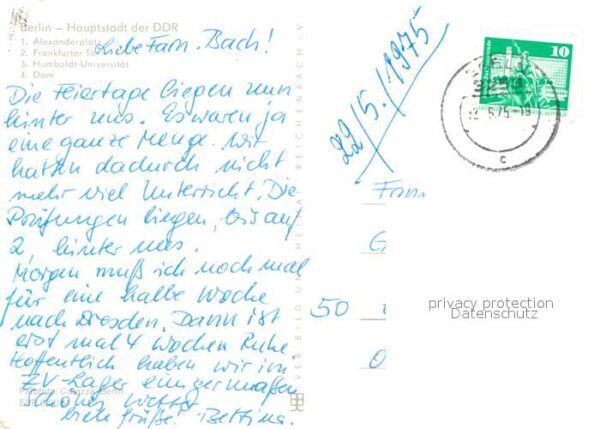 Berlin – Hauptstadt der DDR
1. Alexanderplatz
2. Frankfurter
3. Humboldt-Universität
4. Dom
Liebe Fam. Bach!
Die Feiertage liegen nun
hinter uns. Es waren ja
eine ganze Menge. Wir
hatten dadurch nicht
mehr viel Unterricht. Die
Prüfungen liegen, bis auf
2, hinter uns.
Morgen muß ich noch mal
für eine halbe Woche
nach Dresden. Dann ist
erst mal 4 Wochen Ruhe.
Hoffentlich haben wir im
ZV-Lager einigermaßen
schönes Wetter
viele Grüße! Bettina.
VEB BILD UND HEIMAT REICHENBACH I. V.
22/5./1975
10
c
Fam
G
50
O
privacy protection
Datenschutz